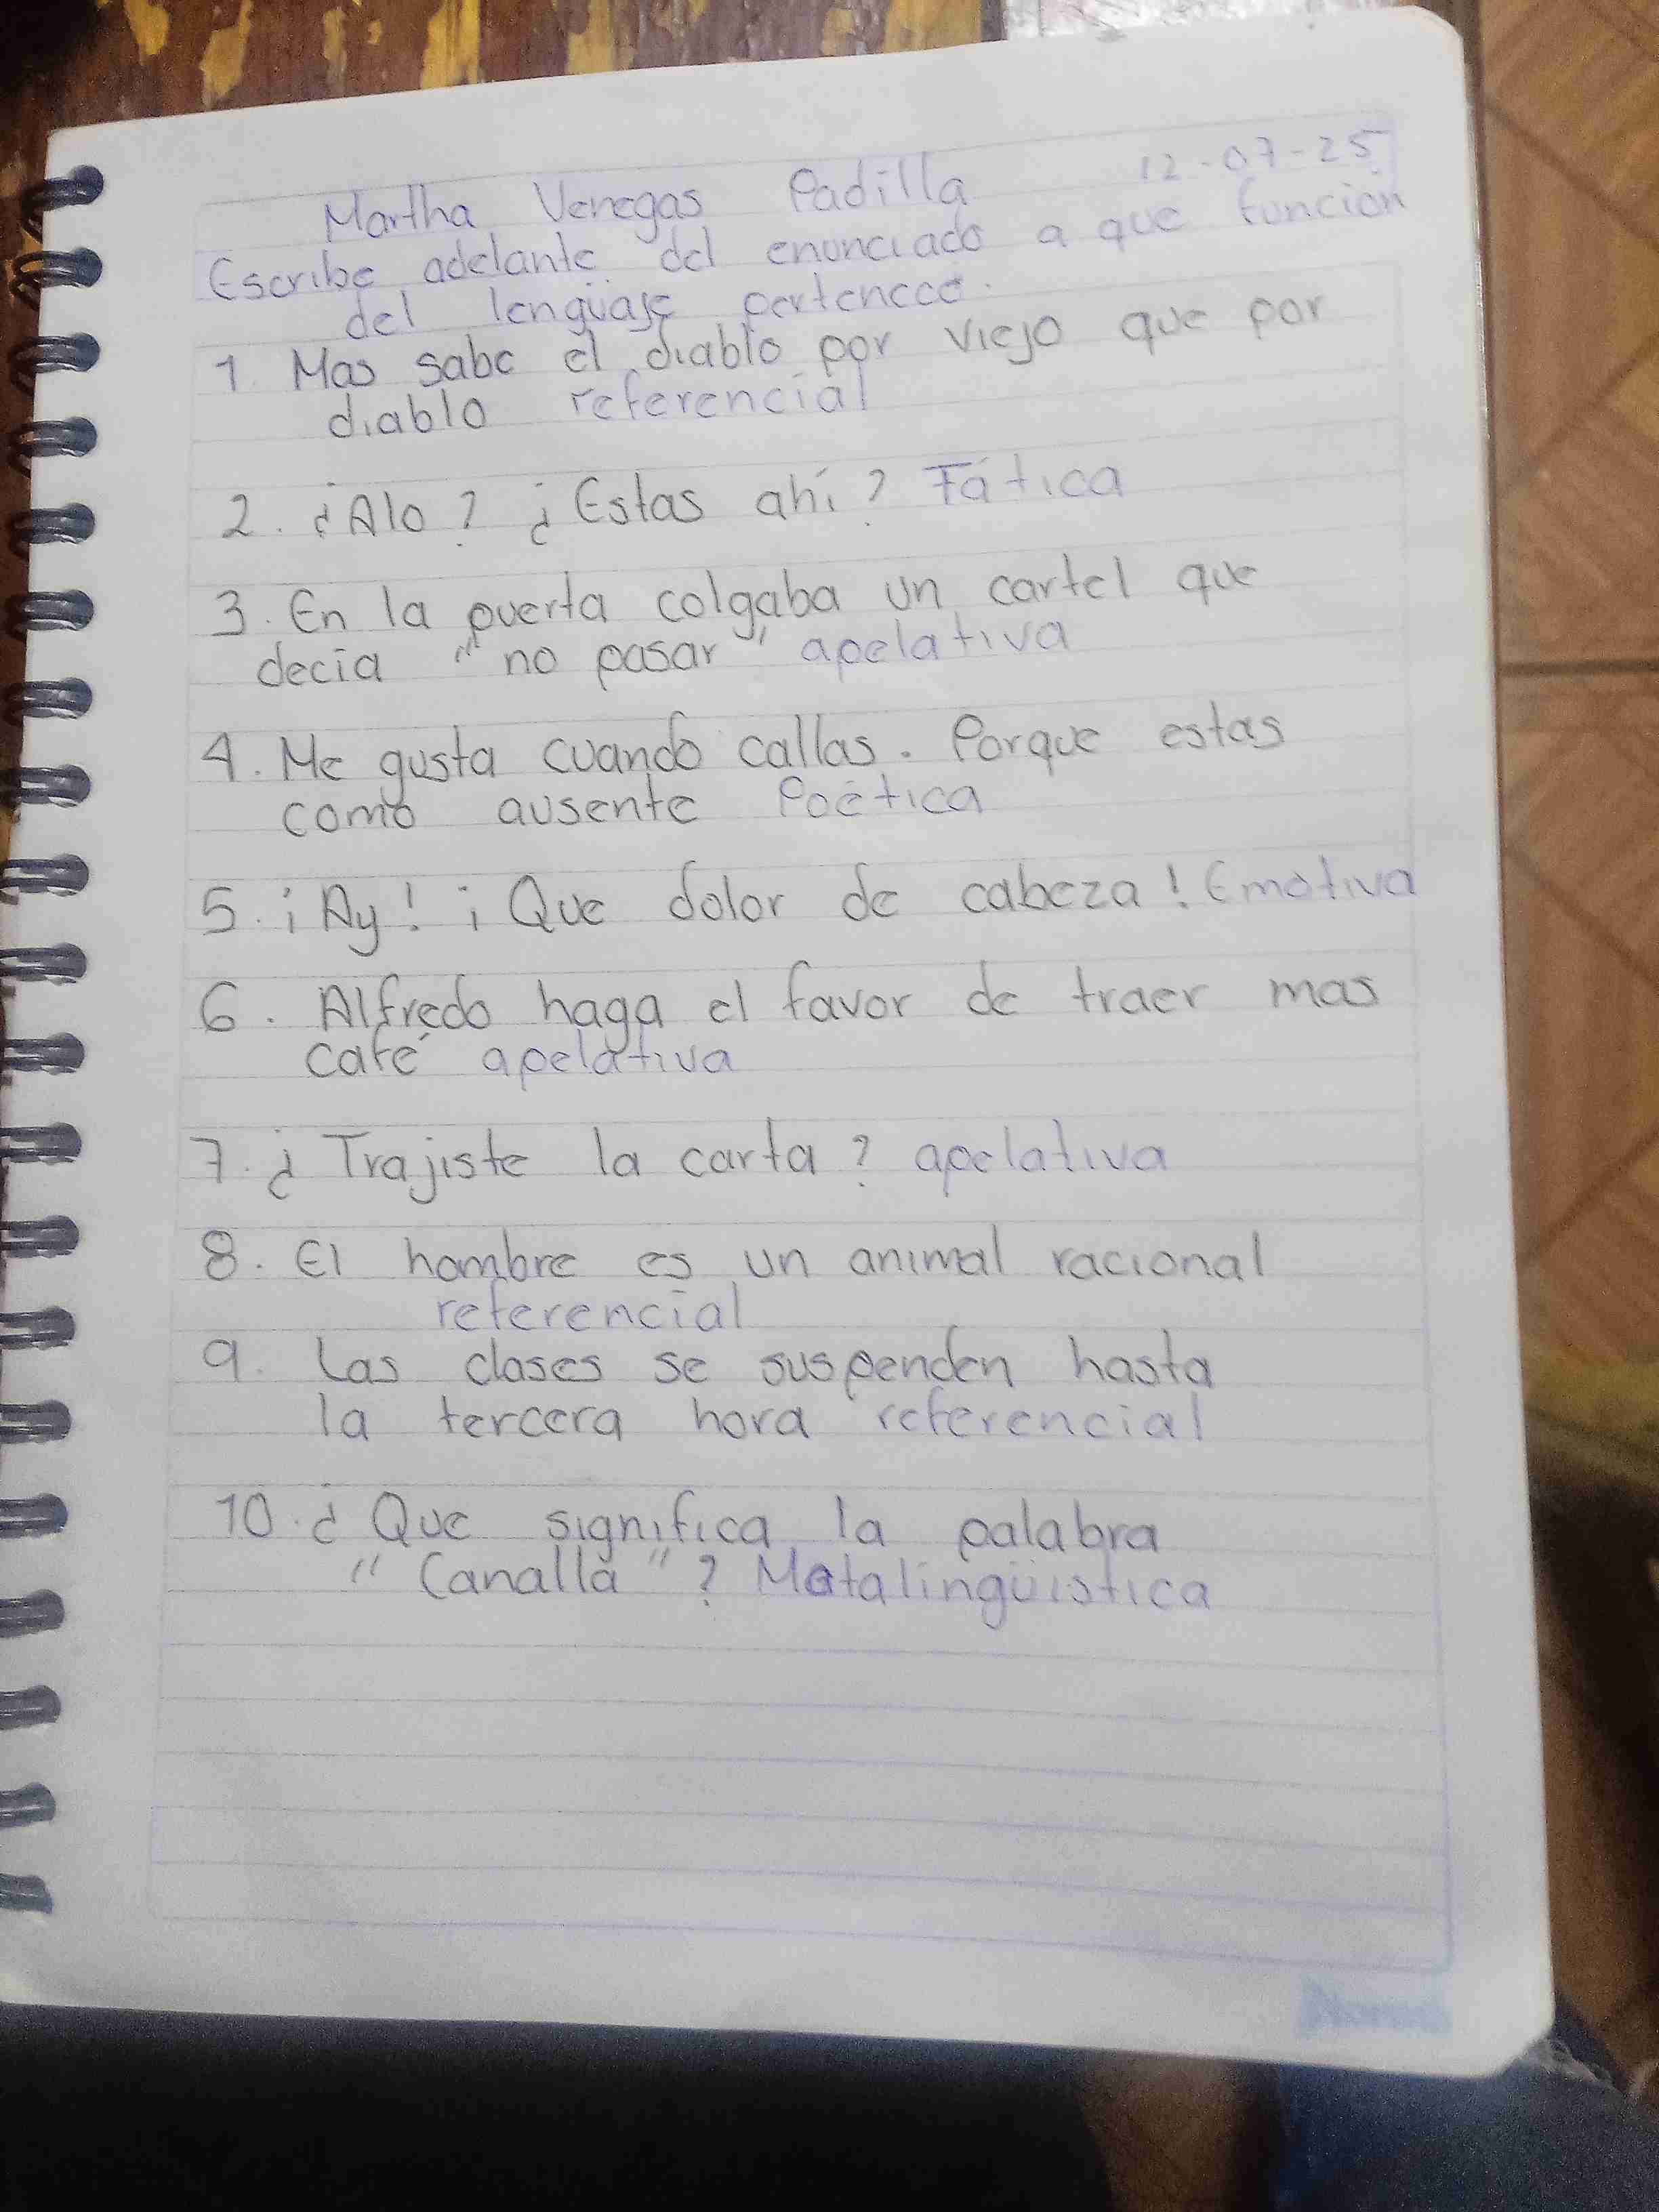 Martha Venegas Padilla 12-07-25
Escribe adelante del enunciado a que función
del lengüaje pertenece.
1. Mas sabe el diablo por viejo que por
diablo referencial
2. ¿Alo? ¿Estas ahí? Fática
3. En la puerta colgaba un cartel que
decia "no pasar" apelativa
4. Me gusta cuando callas. Porque estas
como ausente Poética
5. ¡Ay! ¡Que dolor de cabeza! Emotiva
6. Alfredo haga el favor de traer mas
café apelativa
7. ¿Trajiste la carta? apelativa
8. El hombre es un animal racional
referencial
9. Las clases se suspenden hasta
la tercera hora referencial
10. ¿Que significa la palabra
"Canalla"? Matalingüistica